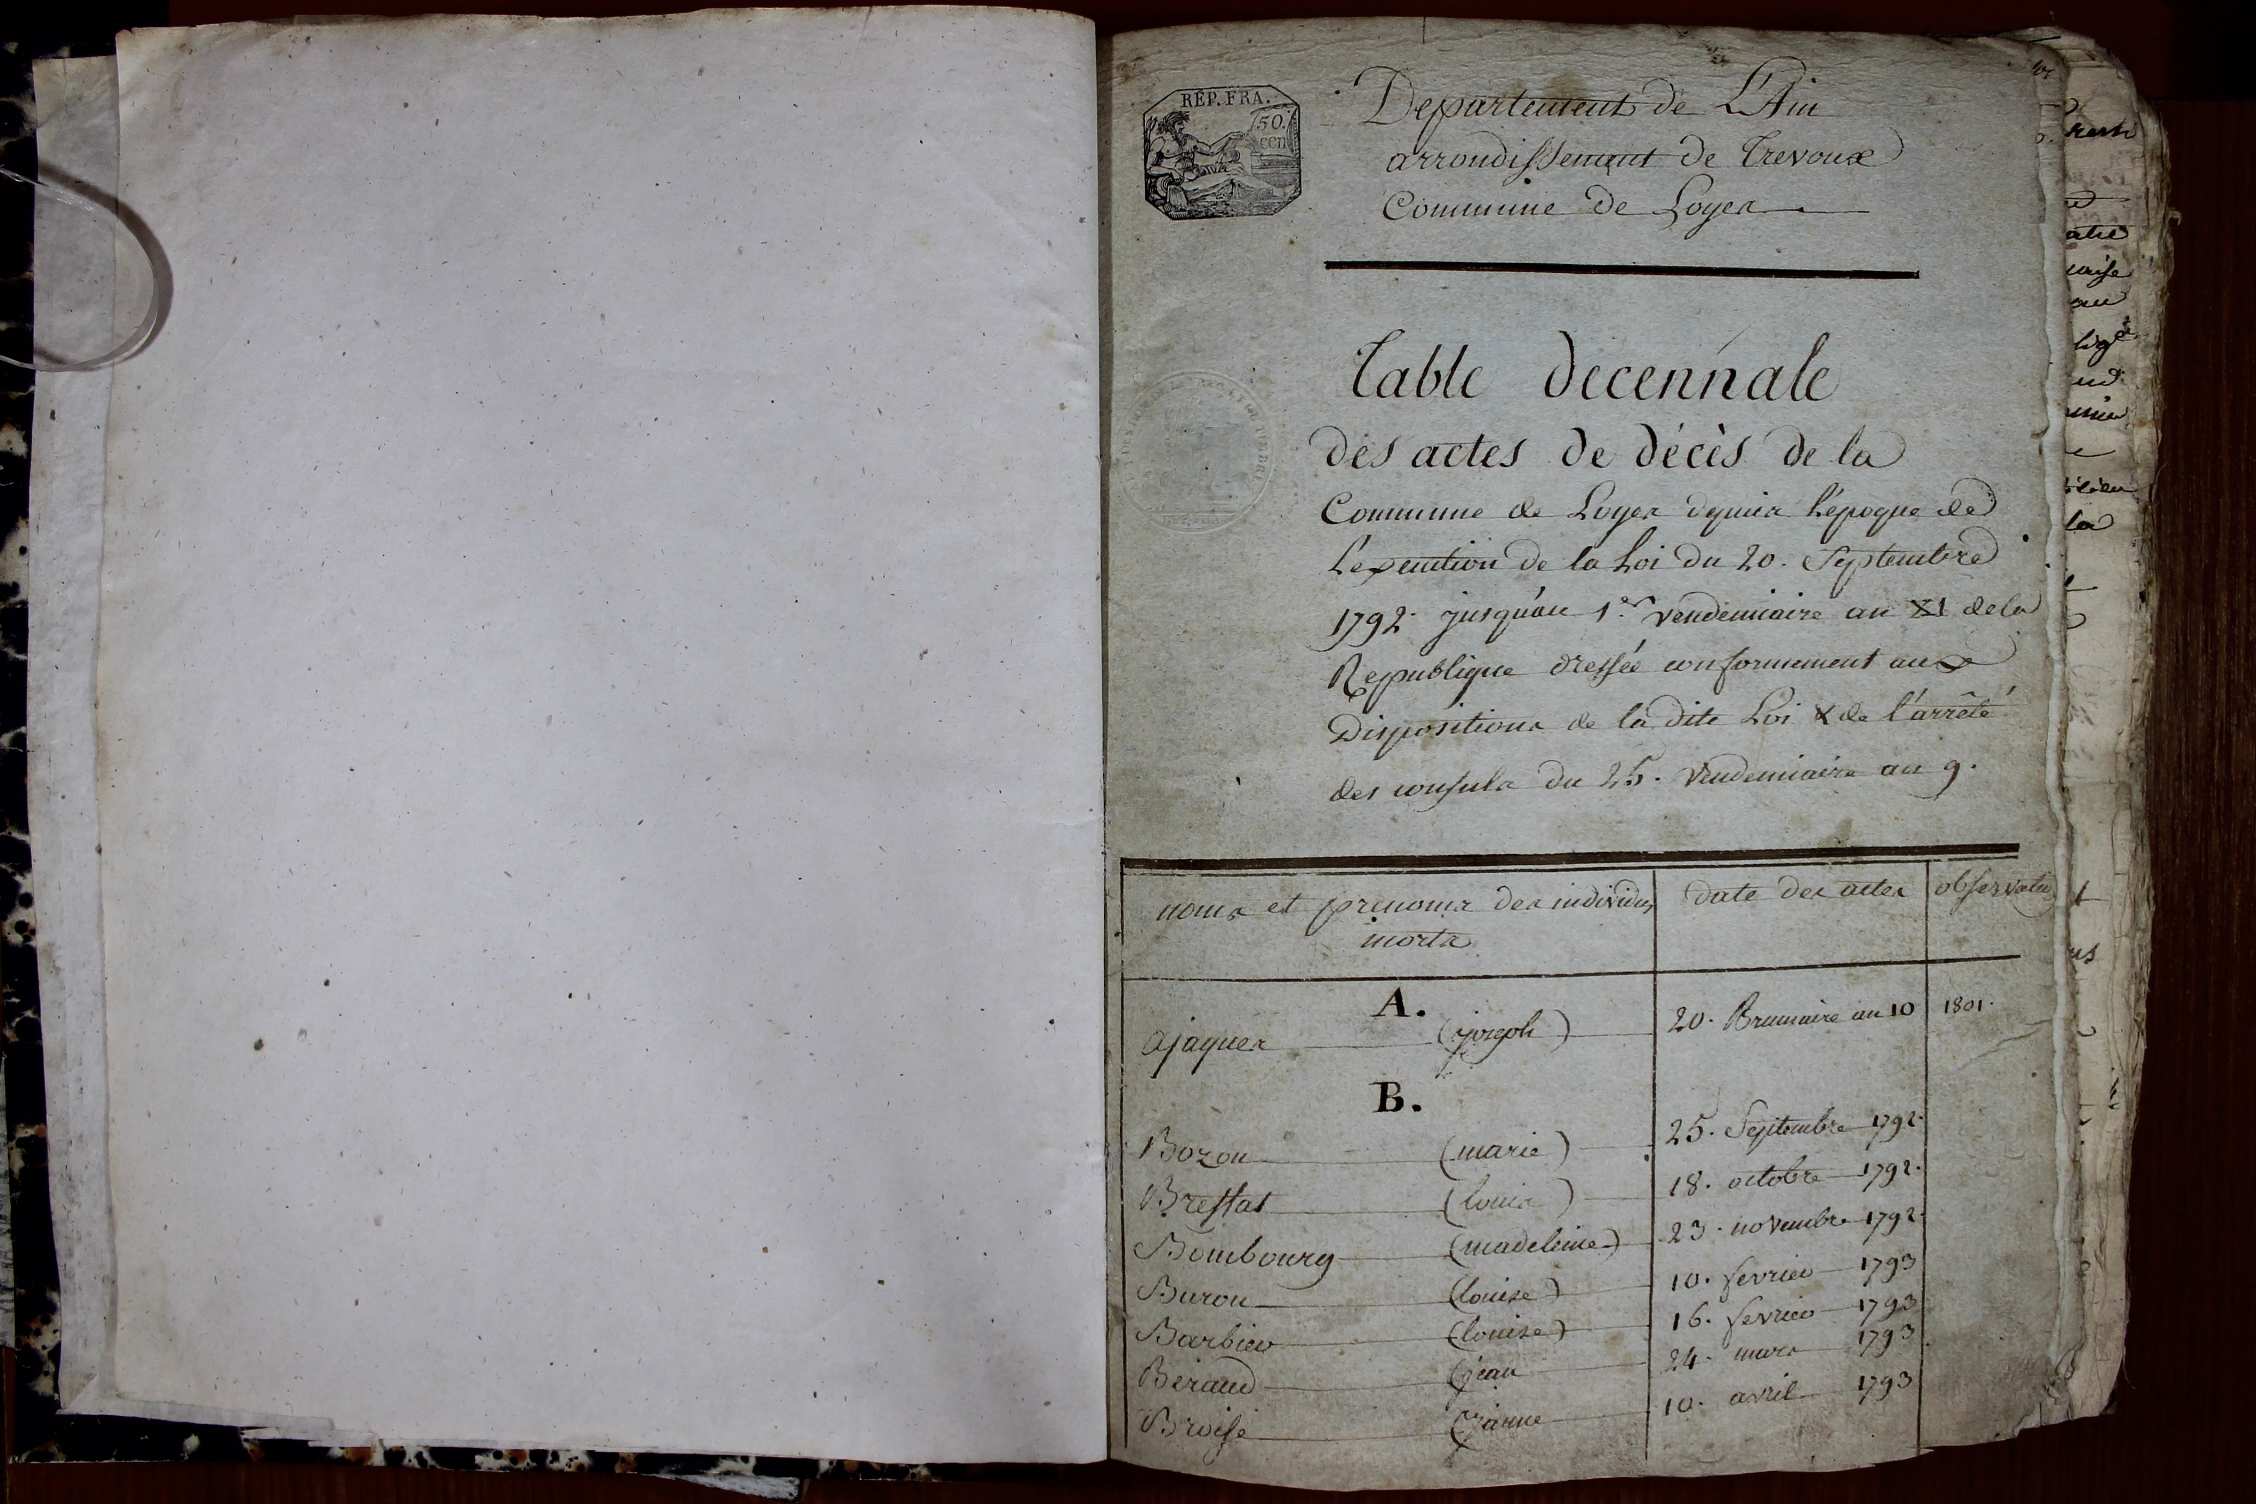 REP. FRA.
50.
cen
Departement de L'Ain
arrondissement de Trevoux
Commune de Loyes
Table decennale
des actes de décès de la
Commune de Loyes depuis l'époque de
L'execution de la Loi du 20. Septembre
1792. jusqu'au 1.er vendemiaire an XI de la
Republique dressée conformement aux
Dispositions de la dite Loi & de l'arrêté
des consuls du 25. Vendemiaire an 9.
noms et prenoms des individus date des actes observatn
morts
A.
ajaques (joseph) 20. Brumaire an 10 1801.
B.
Bozon (marie) 25. Septembre 1792.
Bressat (louis) 18. octobre 1792.
Bombourg (madeleine) 23. novembre 1792.
Buron (louise) 10. fevrier 1793
Barbier (louise) 16. fevrier 1793
Beraud (jean 24. mars 1793
Broisse (jeanne 10. avril 1793